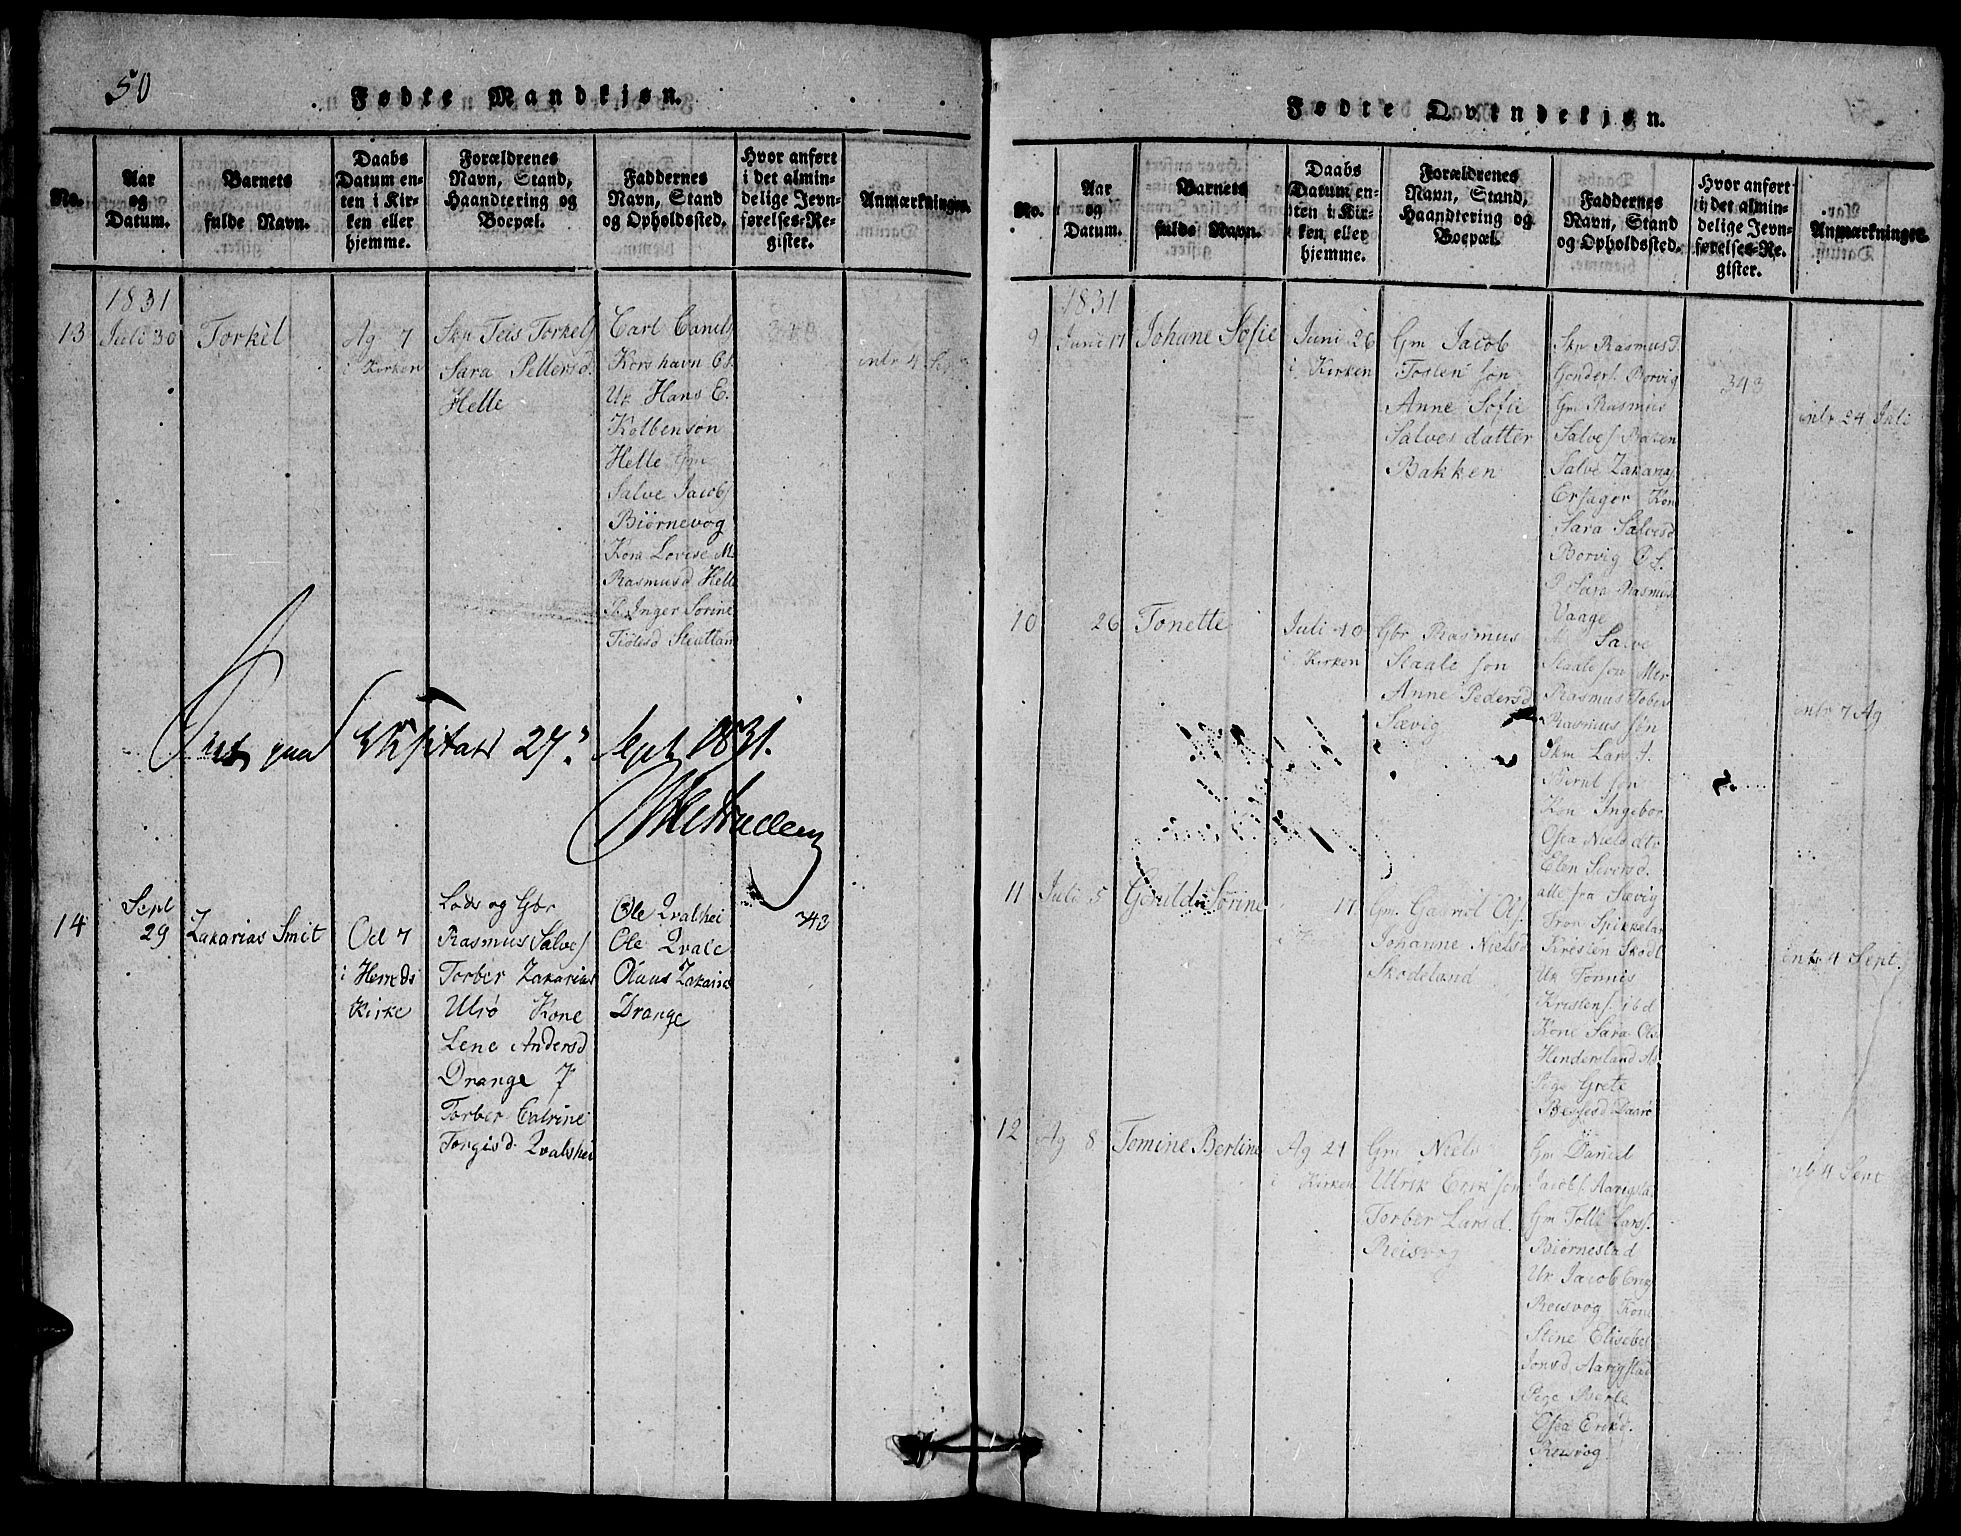 50
Fødte Mandkjøn.
No.
Aar
og
Datum.
Barnets
fulde Navn.
Daabs
Datum en-
ten i Kir-
ken eller
hjemme.
Forældrenes
Navn, Stand,
Haandtering og
Boepæl.
Faddernes
Navn, Stand
og Opholdssted.
Hvor anført
i det almin-
delige Jevn-
førelses-Re-
gister.
Anmærkninger.
1831
13
Juli 30
Torkil
Ag 7
i Kirken
Skp Teis Torkels
Sara Pettersd.
Helle
Carl Canels
Korshavn
Uk Hans E.
Kolbenson
Helle Gm
Salve Jacobs
Biørnevog
Kona Lovise M.
Rasmusd Helle
P. Inger Sorine
intr 4 Sept
Viist paa Visitats 27. Sept 1831.
14
Sept
29
Zakarias Smit
Oct 7
i Herreds
Kirke
Lods og Gbr
Rasmus Salves
Torber Zakarias
Ulrø Kone
Lene Andersd
Drange 7
Torber Catrine
Torgisd. Qvalshei
Ole Qvalhei
Ole Qvale
Olaus Zakarias
Drange
343
Fødte Qvindekjøn.
No.
Aar
og
Datum.
Barnets
fulde Navn.
Daabs
Datum en-
ten i Kir-
ken eller
hjemme.
Forældrenes
Navn, Stand,
Haandtering og
Boepæl.
Faddernes
Navn, Stand
og Opholdssted.
Hvor anført
i det almin-
delige Jevn-
førelses-Re-
gister.
Anmærkninger.
1831
9
Juni 17
Johane Sofie
Juni 26
i Kirken
Gm Jacob
Tosten søn
Anne Sofie
Salves datter
Bakken
Skp Rasmus T.
Gonders. Borvig
Gm Rasmus
Salves. Bakken
Salve Zakarias
Kone
Sara Salvesd
Borvig
P Sara Rasmus
Vaage
343
intr 24 Juli
10
26
Tonette
Juli 10
i Kirken
Gbr Rasmus
Staale søn
Anne Pedersd
Sævig
Salve
Staale søn
Rasmus Tobias
Rasmus søn
Skm Lars J.
Bernt søn
Kon Ingebor
Osea Nielsdtr
Elen Siversd.
alle fra Sævig
intr 7 Ag
11
Juli 5
Gunild Sorine
17
Gm. Gabriel Ols.
Johanne Nielsd
Skodeland
Tron Spikkeland
Kresten Skodl
Uk Tønnes
Kristens. ibd
Kone Sara Ols
Hindersland
Pige Grete
intr 4 Sept.
12
Ag 8
Tomine Bertine
Ag 21
i Kirken
Gm Niels
Ulrik Erik søn
Torber Larsd.
Reisvog
Gm Daniel
Jacobs. Aarigstad
Gm Tolle Larss.
Biørnestad
Ur Jacob Eriks
Reisvog Kone
Stine Elisabet
Jonsd Aarigstad
Pige Berte
Osea Eriksd.
Reisvog
4 Sept